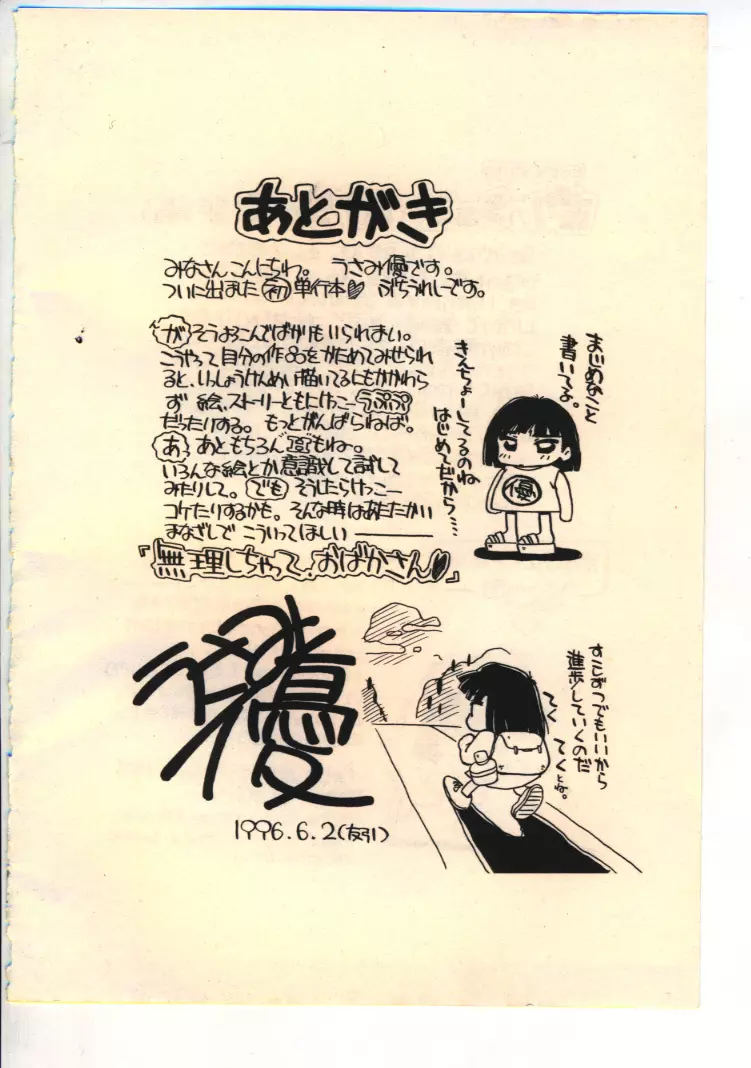 あとがき
みなさんこんにちわ。 うさみ優です。
ついに出ました 初 単行本♡ ぶちうれしーです。
が そうよろこんでばかりもいられまい。
こうやって自分の作品をかためてみせられ
ると、いっしょうけんめい描いてるにもかかわら
ず 絵、ストーリーともにけっこー うぷぷ
だったりする。 もっとがんばらねば。
あ、あともちろん 頂 でもね。
いろんな絵とか意識して試して
みたりして。 でも そうしたらけっこー
コケたりするかも。 そんな時はあたたかい
まなざしで こういってほしい ―――
『無理しちゃって、おばかさん♡』
まじめなこと
書いてるよ。
きんちょーしてるのね
はじめてだから……
優
うさみ優
1996.6.2(友引)
すこしずつでもいいから
進歩していくのだ
てく
てくとな。